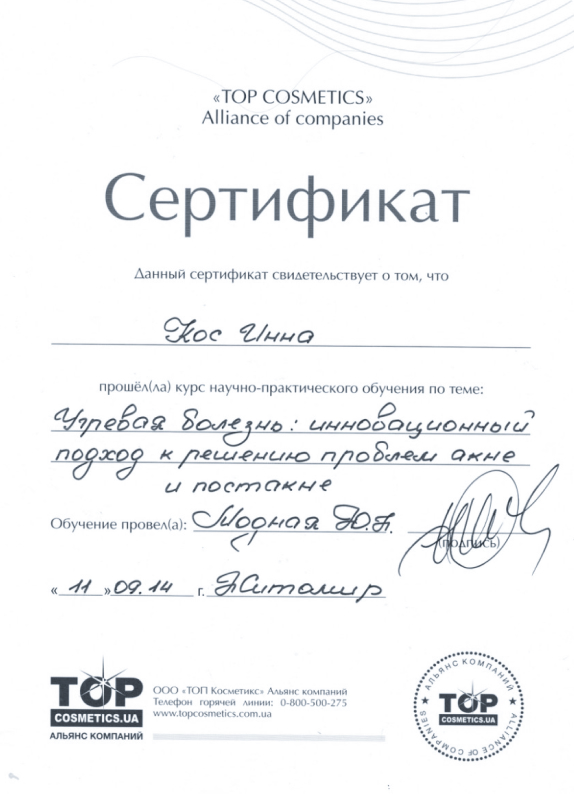 «TOP COSMETICS»
Alliance of companies
Сертификат
Данный сертификат свидетельствует о том, что
Кос Инна
прошёл(ла) курс научно-практического обучения по теме:
Угревая болезнь: инновационный
подход к решению проблем акне
и постакне
Обучение провел(а): Модная Ю.А.
(подпись)
« 11 » 09.14 г. Житомир
TOP
COSMETICS.UA
АЛЬЯНС КОМПАНИЙ
ООО «ТОП Косметикс» Альянс компаний
Телефон горячей линии: 0-800-500-275
www.topcosmetics.com.ua
АЛЬЯНС КОМПАНИЙ
TOP
COSMETICS.UA
ALLIANCE OF COMPANIES